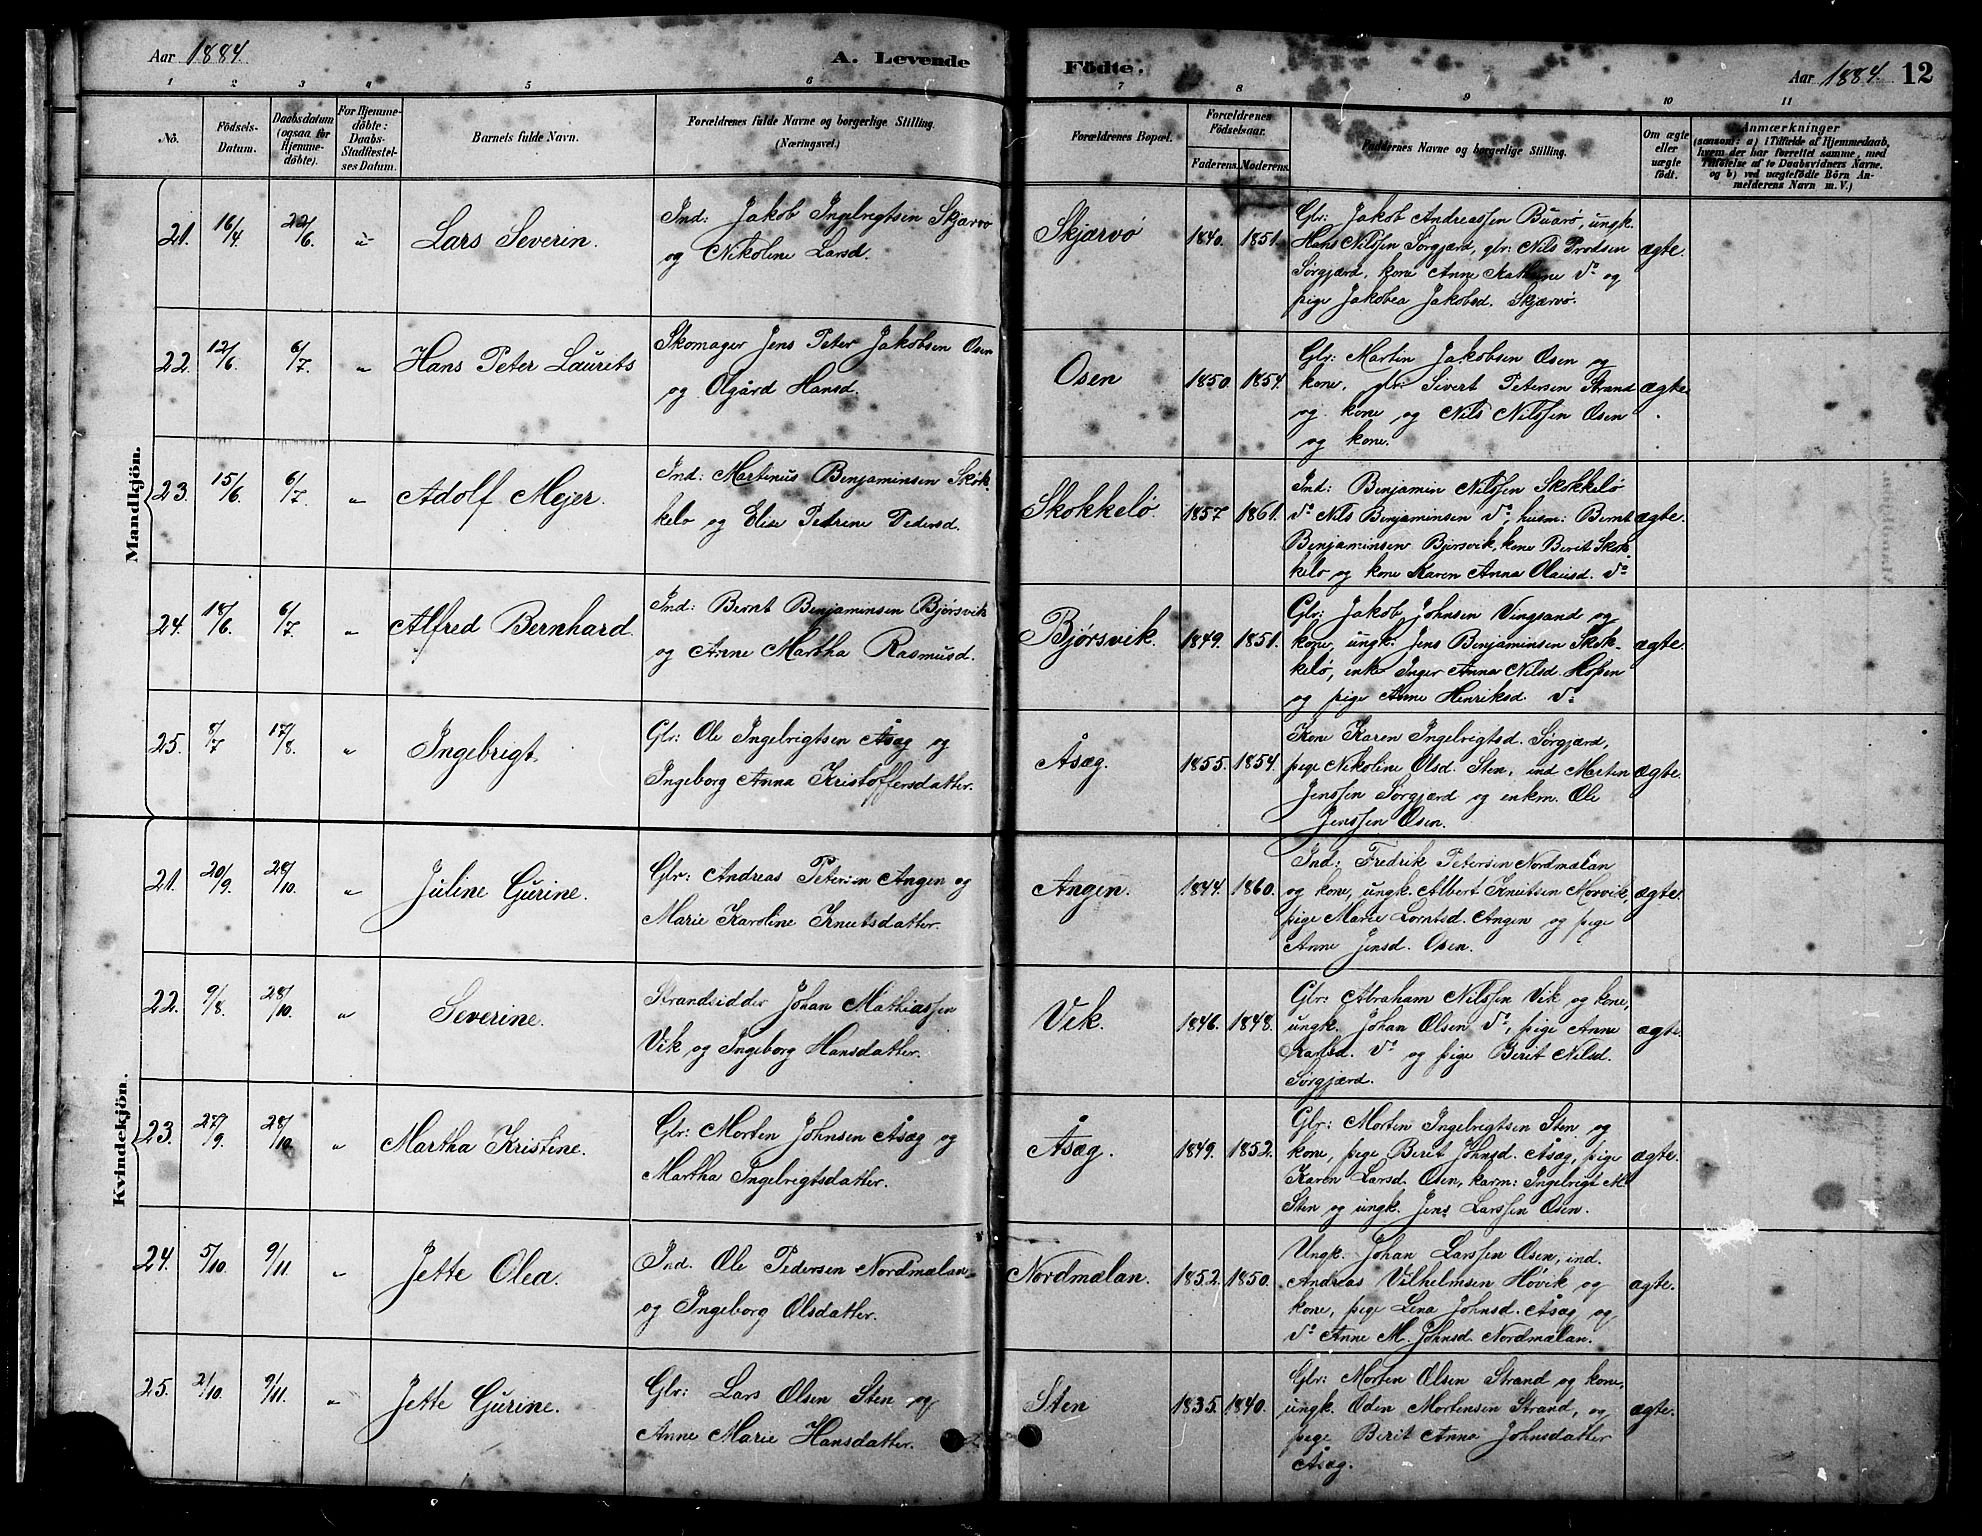 Aar 1884.
A. Levende
Födte.
Aar 1884. 12
1 2 3 4 5 6 7 8 9 10 11
No.
Födsels-Datum.
Daabsdatum (ogsaa for Hjemme-döbte).
For Hjemme-döbte: Daabs-Stadfæstel-ses Datum.
Barnets fulde Navn.
Forældrenes fulde Navne og borgerlige Stilling. (Næringsvei.)
Forældrenes Bopæl.
Forældrenes Födselsaar.
Faderens. Moderens.
Faddernes Navne og borgerlige Stilling.
Om ægte eller uægte födt.
Anmærkninger
(saasom: a) i Tilfælde af Hjemmedaab,
hvem der har forrettet samme, med
Tilföielse af to Daabsvidners Navne.
og b) ved uægtefödte Börn An-
melderens Navn m. V.)
Mandkjön.
21. 16/4 22/6. " Lars Severin.
Ind: Jakob Ingebrigtsen Skjærvø
og Nikoline Larsd.
Skjærvø 1840. 1851.
Gbr: Jakob Andreassen Buarø, ungk.
Hans Nilssen Sørgjærd, gbr: Nils Prodsen
Sørgjærd, kone Anne Kathrine do og
pige Jakobea Jakobsd. Skjærvø.
ægte.
22. 12/6. 6/7. " Hans Peter Laurits
Skomager Jens Peter Jakobsen Osen
og Olgård Hansd.
Osen 1850. 1854.
Gbr: Martin Jakobsen Osen og
kone, gbr: Sivert Petersen Strand
og kone og Nils Nilssen Osen
og kone.
ægte.
23. 15/6. 6/7. " Adolf Mejer.
Ind: Martinus Benjaminsen Skok-
kelø og Elise Petrine Pedersd.
Skokkelø. 1857 1861.
Ind: Benjamin Nilssen Skokkelø
do Nils Benjaminsen do, husm: Bernt
Benjaminsen Bjørsvik, kone Berit Skok-
kelø og kone Karen Anna Olausd. do
ægte.
24. 18/6. 6/7. " Alfred Bernhard.
Ind: Bernt Benjaminsen Bjørsvik
og Anne Martha Rasmusd.
Bjørsvik. 1849. 1851.
Gbr: Jakob Johnsen Vingsand og
kone, ungk. Jens Benjaminsen Skok-
kelø, enke Inger Anna Nilsd. Hopen
og pige Anne Henriksd. do
ægte.
25. 8/7 17/8. " Ingebrigt.
Gbr: Ole Ingebrigtsen Åsæg og
Ingeborg Anna Kristoffersdatter.
Åsæg. 1855. 1854.
Kone Karen Ingebrigtsd. Sørgjærd,
pige Nikoline Olsd. Sten, ind Morten
Jenssen Sørgjærd og enkm. Ole
Jenssen Osen.
ægte.
Kvindekjön.
21. 20/9. 28/10. " Juline Gurine.
Gbr: Andreas Petersen Angen og
Marie Karoline Knutsdatter.
Angen. 1844. 1860.
Ind: Fredrik Petersen Nordmælan
og kone, ungk. Albert Knutsen Morvik,
pige Marie Lorntsd. Angen og pige
Anne Jensd. Osen.
ægte.
22. 9/8. 28/10. " Severine.
Strandsidder Johan Mathiassen
Vik og Ingeborg Hansdatter.
Vik. 1846. 1848.
Gbr: Abraham Nilssen Vik og kone,
ungk. Johan Olsen do, pige Anne
do og pige Berit Nilsd.
Sørgjærd.
ægte.
23. 27/9. 28/10. " Martha Kristine.
Gbr: Morten Johnsen Åsæg og
Martha Ingebrigtsdatter.
Åsæg. 1849. 1852.
Gbr: Morten Ingebrigtsen Sten og
kone, pige Berit Johnsd. Åsæg, pige
Karen Larsd. Osen, karm: Ingebrigt M.
Sten og ungk. Jens Larssen Osen.
ægte.
24. 5/10. 9/11. " Jette Olea.
Ind. Ole Pedersen Nordmælan
og Ingeborg Olsdatter.
Nordmælan. 1852. 1850.
Ungk. Johan Larssen Osen, ind.
Andreas Vilhelmsen Høvik og
kone, pige Lena Johnsd. Åsæg og
do Anne M. Johnsd. Nordmælan.
ægte.
25. 2/10. 9/11. " Jette Gurine.
Gbr: Lars Olsen Sten og
Anne Marie Hansdatter.
Sten 1835. 1840.
Gbr: Morten Olsen Strand og kone,
ungk. Oden Mortensen Strand, og
pige Berit Anna Johnsdatter
Åsæg.
ægte.